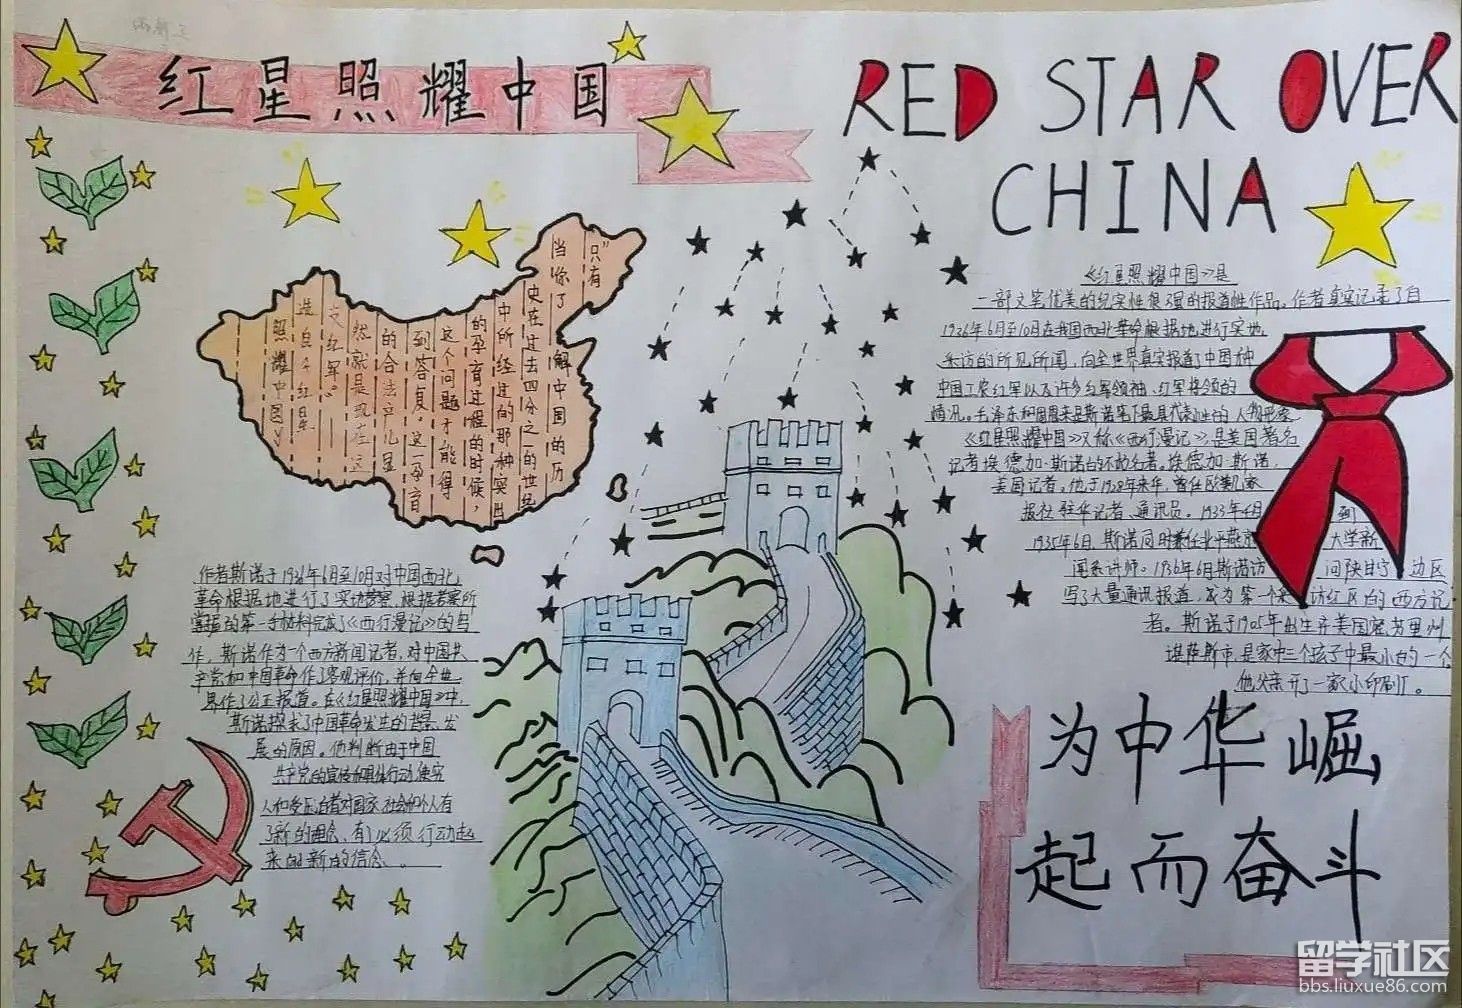 红星照耀中国
RED STAR OVER
CHINA
"只有
当你了
解中国的历
史在过去四分之一的世纪
中所经过的那种突出
的孕育过程的时候，
这个问题才能得
到答复。这一孕育
的合法产儿显
然就是现在这
支红军。"
——
选自《红星
照耀中国》
《红星照耀中国》是
一部文笔优美的纪实性很强的报道性作品。作者真实记录了自
1936年6月至10月在我国西北革命根据地进行实地
采访的所见所闻，向全世界真实报道了中国和
中国工农红军以及许多红军领袖、红军将领的
情况。毛泽东和周恩来是斯诺笔下最具代表性的人物形象
《红星照耀中国》又称《西行漫记》，是美国著名
记者埃德加·斯诺的不朽名著。埃德加·斯诺，
美国记者。他于1928年来华，曾任欧美几家
报社驻华记者、通讯员。1933年4月 到
1935年6日，斯诺同时兼任北平燕京 大学新
闻系讲师。1936年6月斯诺访 问陕甘宁 边区
写了大量通讯报道，成为第一个采 访红区的西方记
者。斯诺于1905年出生于美国密苏里州
堪萨斯市，是家中三个孩子中最小的一个
他父亲开了一家小印刷厂。
作者斯诺于1936年6月至10月对中国西北
革命根据地进行了实地考察，根据考察所
掌握的第一手材料完成了《西行漫记》的写
作，斯诺作为一个西方新闻记者，对中国共
产党和中国革命作了客观评价，并向全世
界作了公正报道。在《红星照耀中国》中，
斯诺探求了中国革命发生的背景、发
展的原因。他判断由于中国
共产党的宣传和具体行动，使穷
人和受压迫者对国家、社会和个人有
了新的理念，有了必须行动起
来的新的信念。
为中华崛
起而奋斗
留学社区
bbs.liuxue86.com